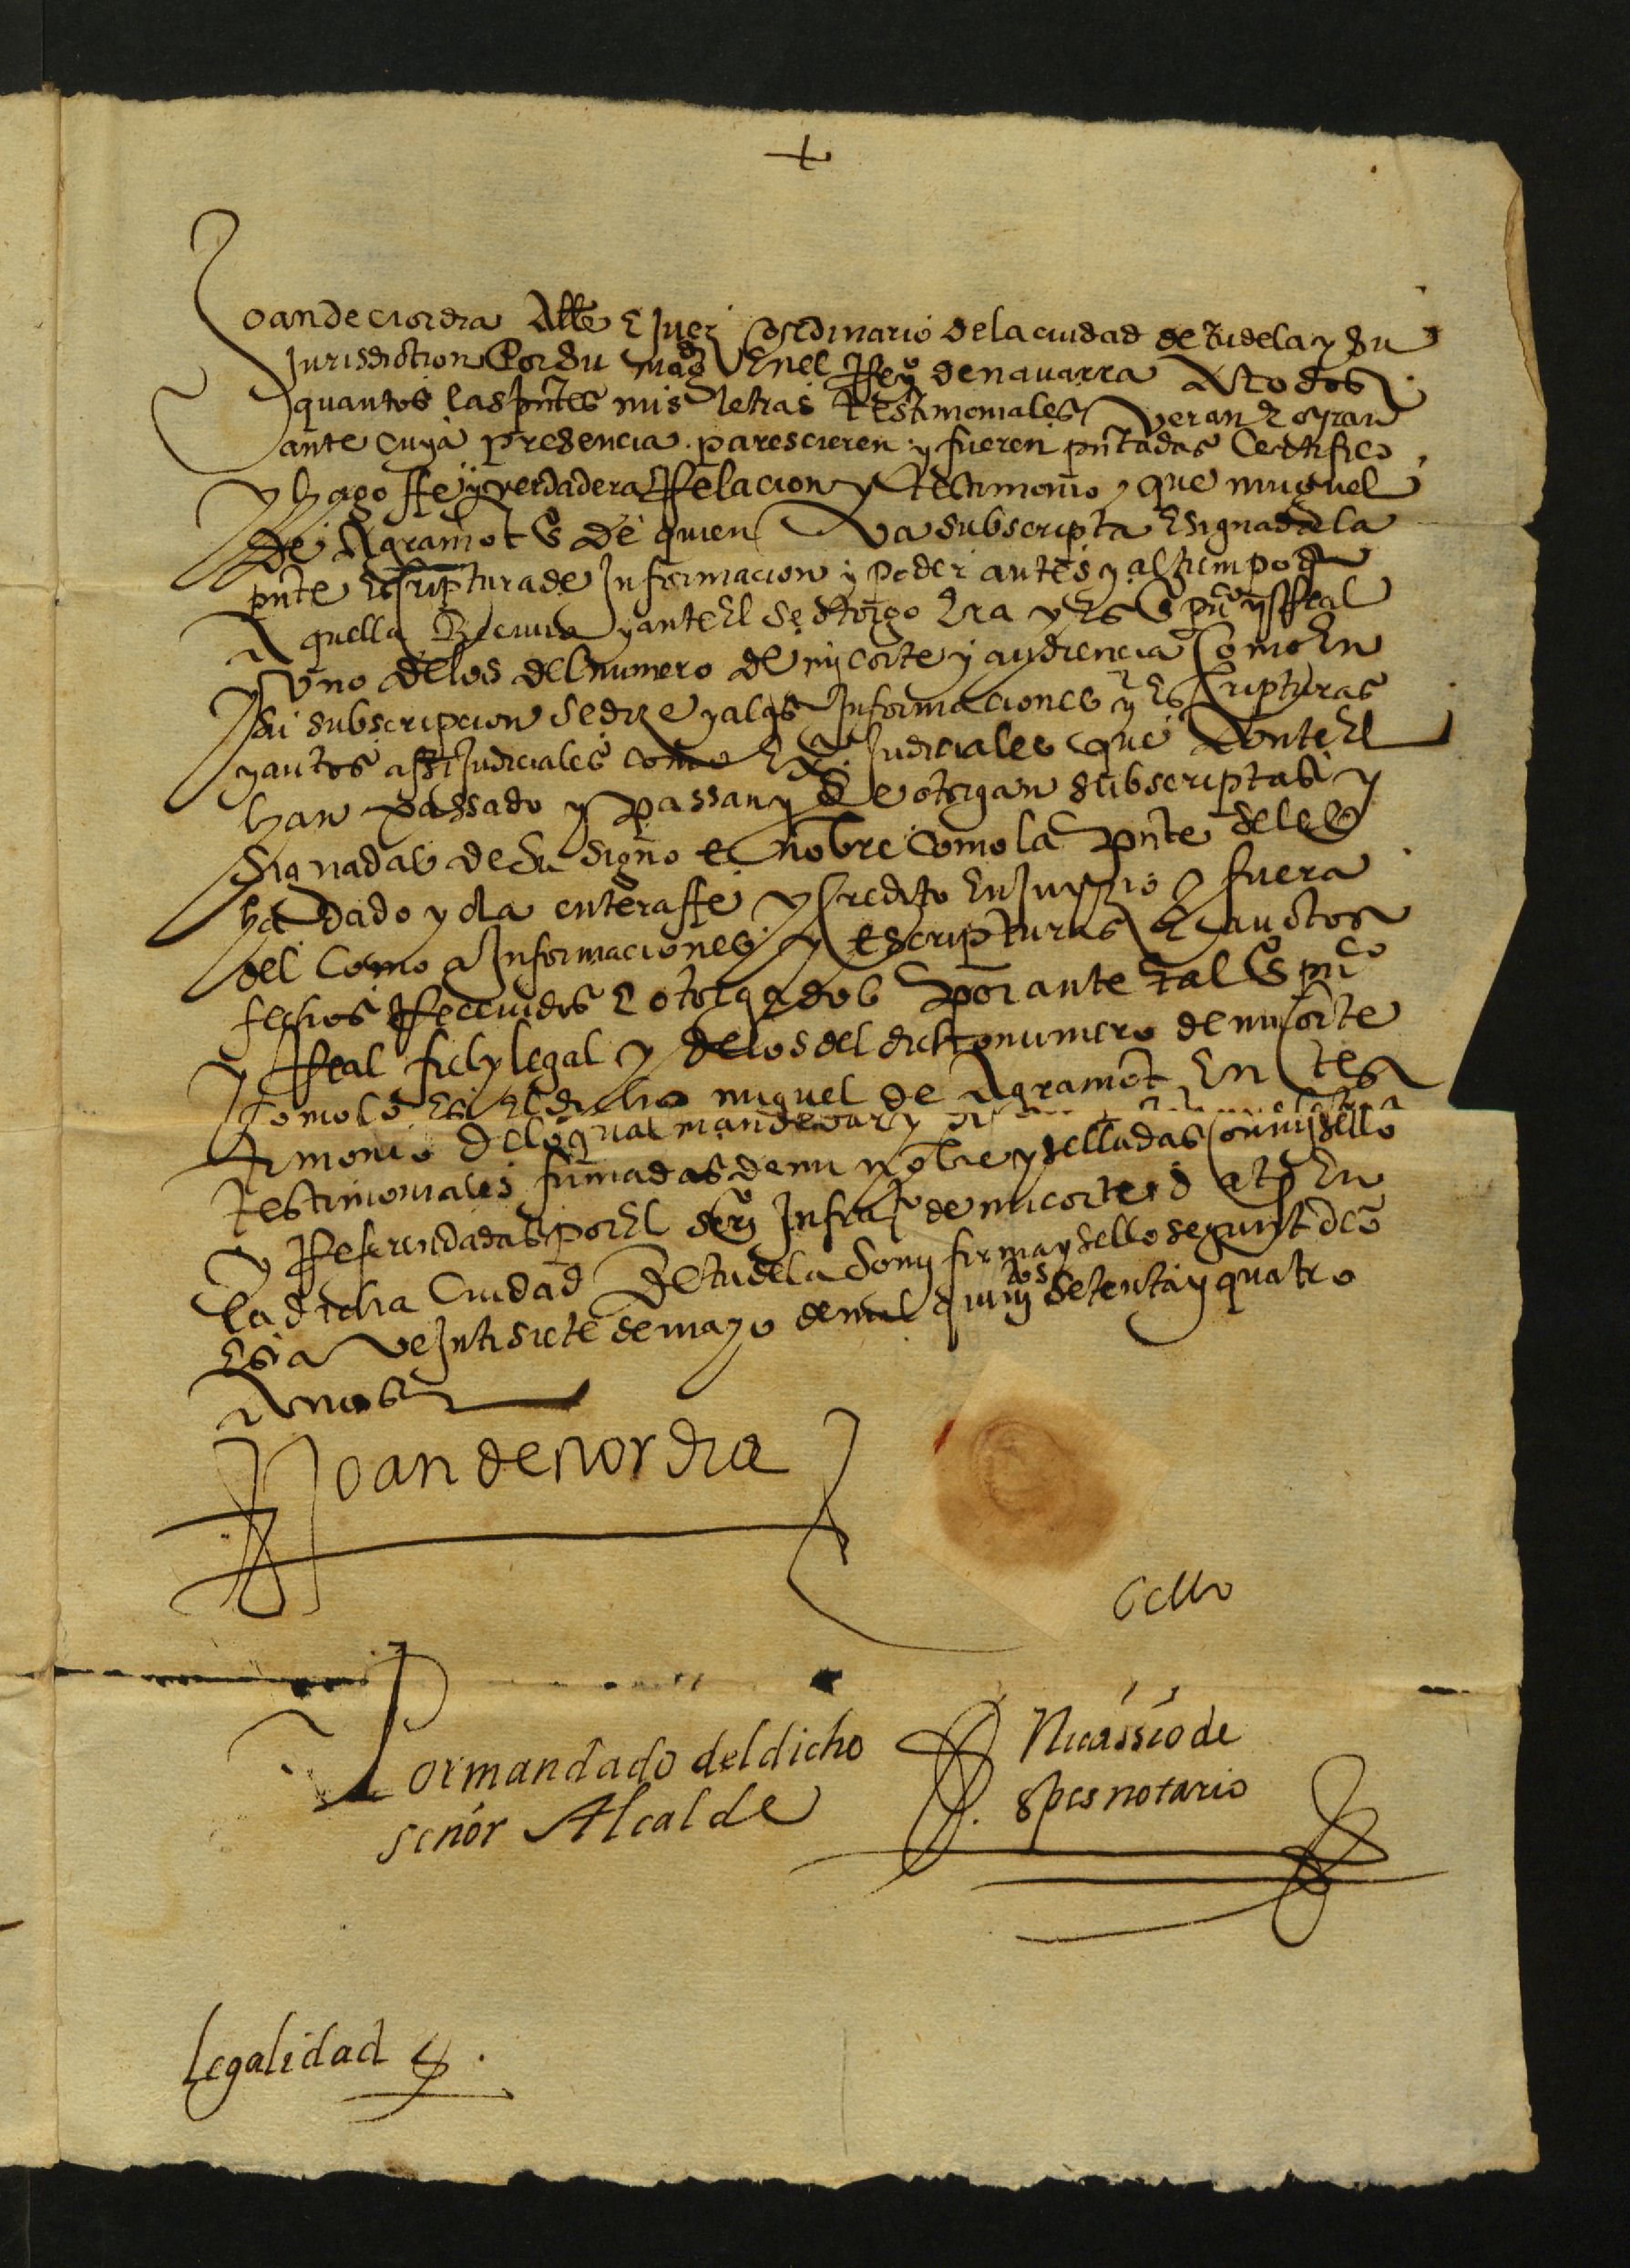 +
Joan de ciordia Allde E Juez ordinario de la ciudad de tudela y su
Jurisdiction Por su magd En el Reyo de nauarra A todos
quantos las pntes mis letras testimoniales veran E oyran
ante cuya presencia parescieren y fueren pntadas Certifico
y hago ffe y verdadera Relacion y testimonio que miguel
de Agramot de quien Va subscripta E signada la
pnte Escriptura de Informacion y poder antes y al tiempo q
Aquella Reciuio y ante El se otorgo Era y Es pu° y Real
y Vno de los del numero de mi corte y audiencia Como En
su subscripcion se dize y a las Informaciones y Escripturas
y autos assi Judiciales como Extra Judiciales que Ante El
han passado y passan y Se otorgan subscriptas y
signadas de su signo E nobre como la pnte se les
ha dado y da entera ffe y Credito En Juyzio y fuera
del Como a Informaciones y escripturas E auctos
fechos Receuidos E otorgados Por ante tal pu°
y Real fiel y legal y de los del dicho numero de mi Corte
como lo Es El dicho miguel de Agramot En tes
timonio de lo qual mande dar y
testimoniales firmadas de mi nobre y selladas con mi sello
y Referendadas por El Infrato de mi corte dats En
la dicha Ciudad De tudela so my firma y sello segunt dcho
Es a veJnti siete de mayo de mil quinios setenta y quatro
Anos
Joan de ciordia
sello
Por mandado del dicho
señor Alcalde
Nicassio de
spes notario
Legalidad